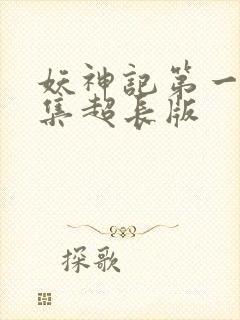 妖神記第一
集超長版
探歌